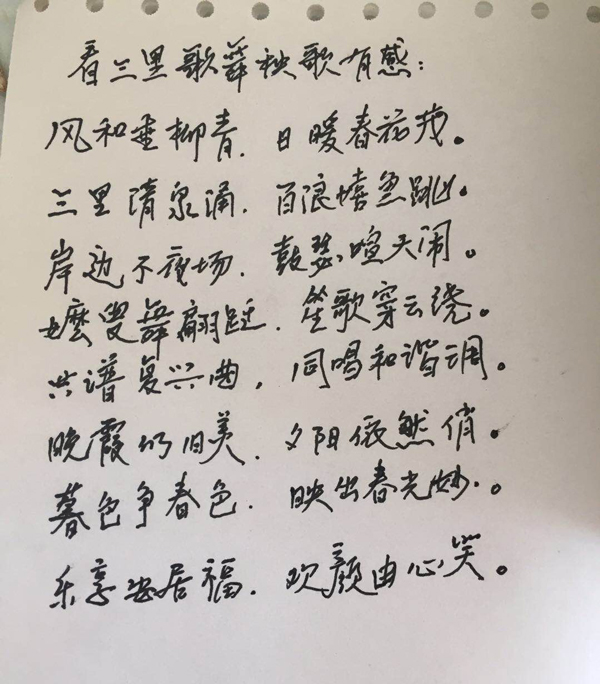 看三里歌舞秧歌有感:
风和垂柳青. 日暖春花茂。
三里清泉涌. 百浪嬉鱼跳。
岸边不夜场. 鼓瑟喧天闹。
嬷叟舞翩跹. 笙歌穿云绕。
共谱复兴曲, 同唱和谐调。
晚霞仍旧美. 夕阳依然俏。
暮色争春色. 映出春光妙。
乐享安居福. 欢颜由心笑。